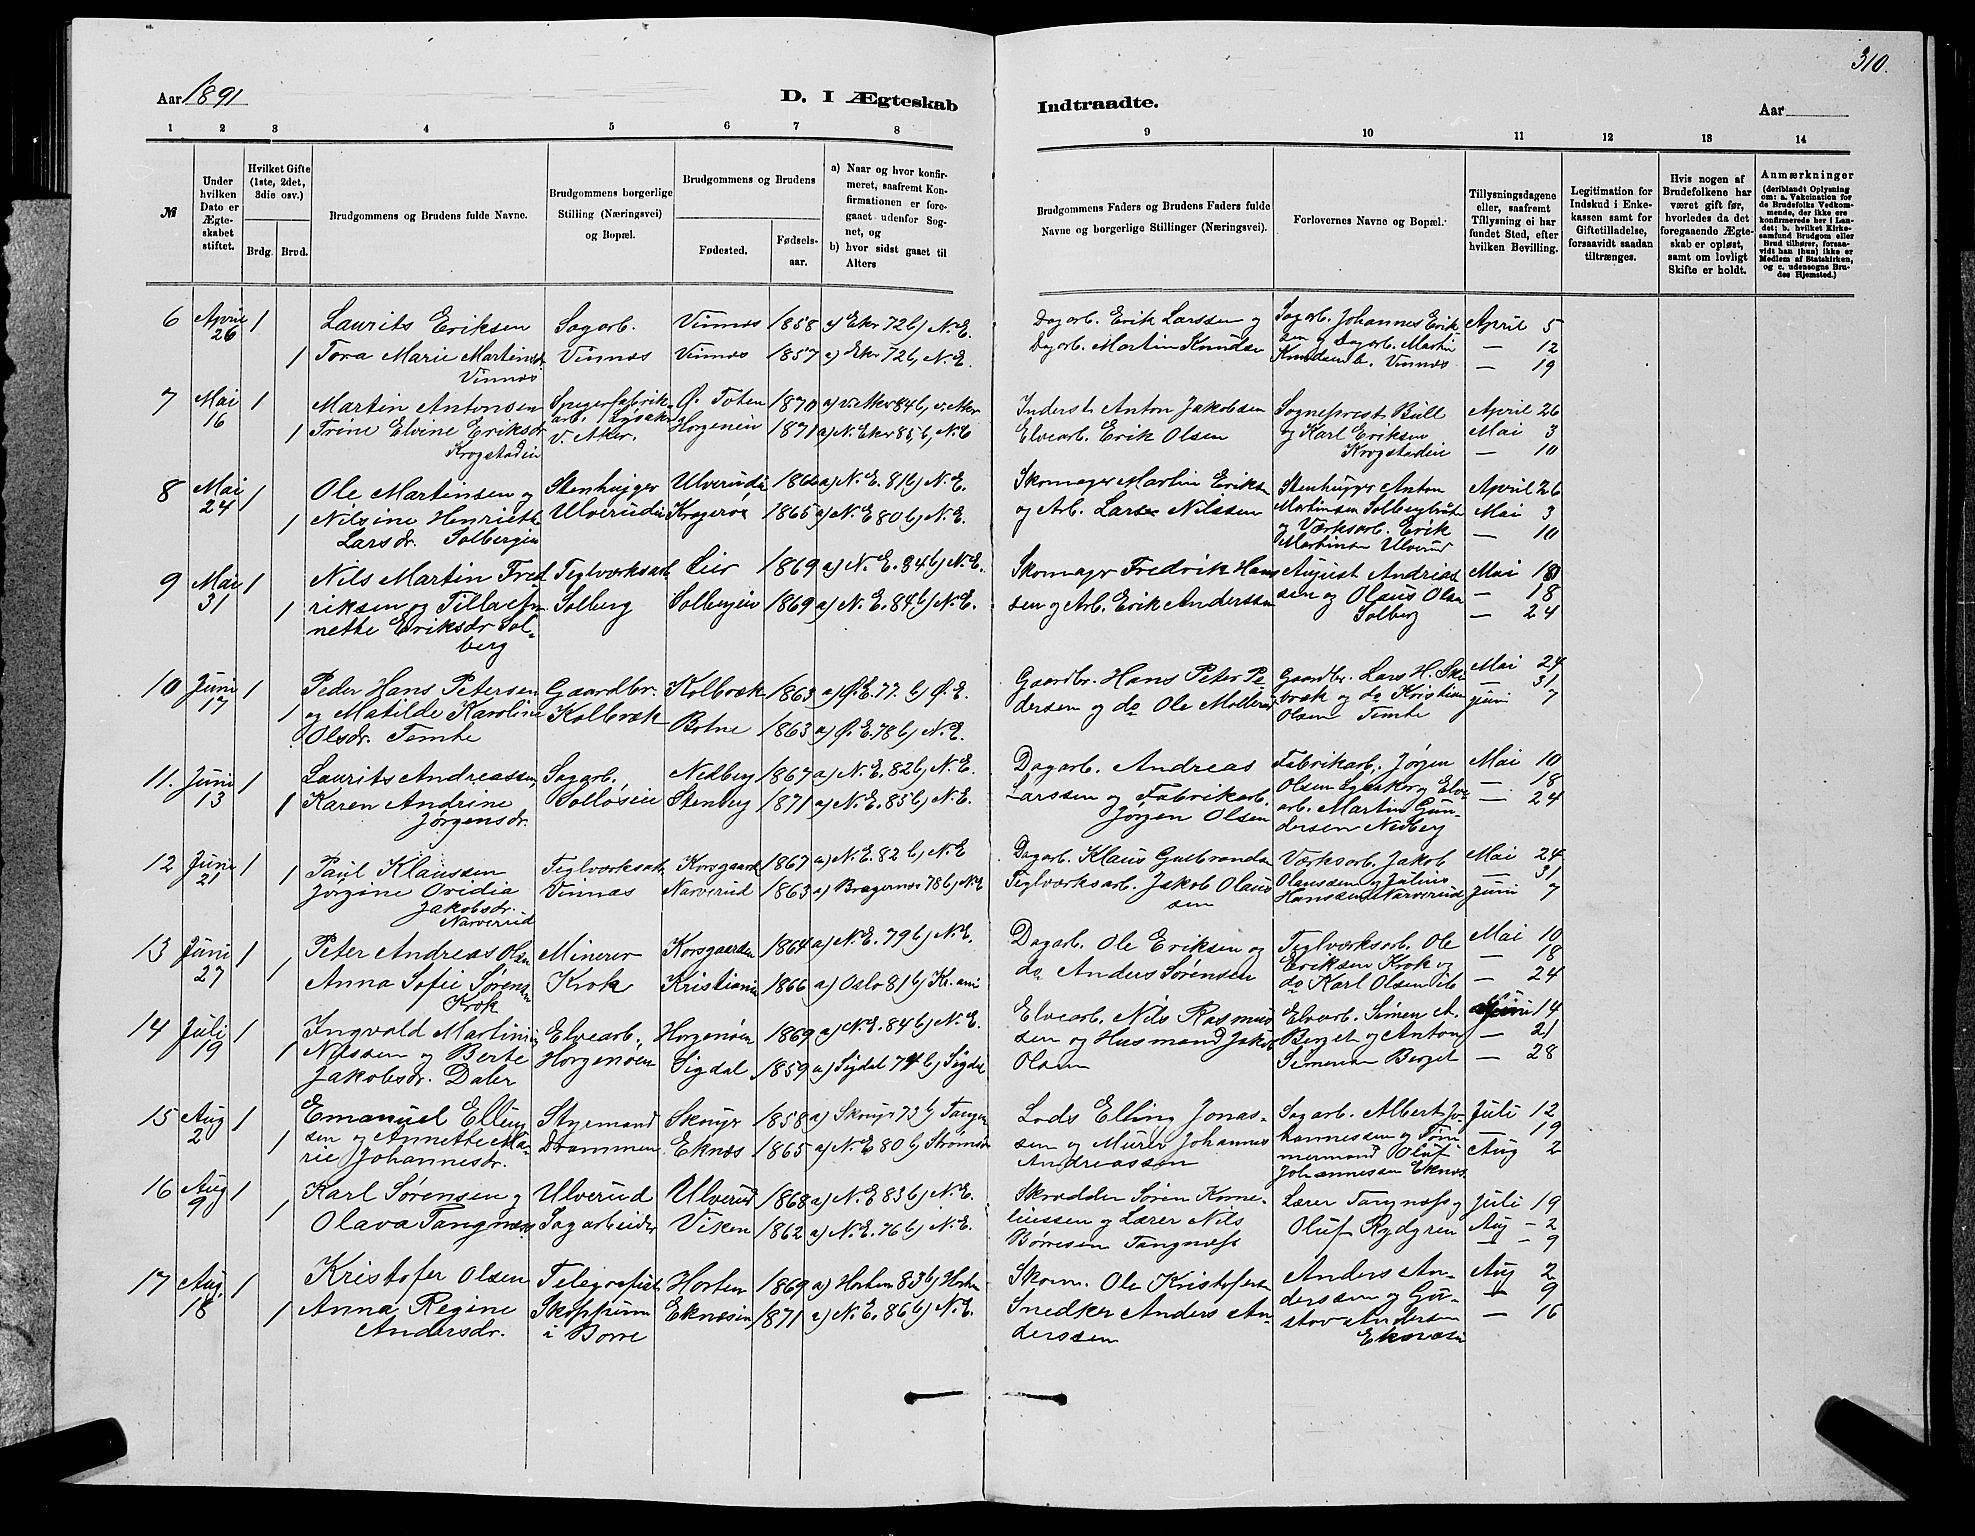 310.
Aar 1891 D. I Ægteskab Indtraadte. Aar
1 2 3 4 5 6 7 8 9 10 11 12 13 14
№
Under hvilken Dato er Ægteskabet stiftet.
Hvilket Gifte (1ste, 2det, 3die osv.)
Brdg. Brud.
Brudgommens og Brudens fulde Navne.
Brudgommens borgerlige Stilling (Næringsvei) og Bopæl.
Brudgommens og Brudens
Fødested. Fødselsaar.
a) Naar og hvor konfirmeret, saafremt Konfirmationen er foregaaet udenfor Sognet, og
b) hvor sidst gaaet til Alters
Brudgommens Faders og Brudens Faders fulde Navne og borgerlige Stillinger (Næringsvei).
Forlovernes Navne og Bopæl.
Tillysningsdagene eller, saafremt Tillysning ei har fundet Sted, efter hvilken Bevilling.
Legitimation for Indskud i Enkekassen samt for Giftetilladelse, forsaavidt saadan tiltrænges.
Hvis nogen af Brudefolkene har været gift før, hvorledes da det foregaaende Ægteskab er opløst, samt om lovligt Skifte er holdt.
Anmærkninger (deriblandt Oplysning om: a. Vakcination for de Brudefolks Vedkommende, der ikke ere konfirmerede her i Landet; b. hvilket Kirkesamfund Brudgom eller Brud tilhører, forsaavidt han (hun) ikke er Medlem af Statskirken, og c. udensogns Brudes Hjemsted.)
6 April 1 Laurits Eriksen Sagarb. Vinnæs 1858 a) Eker 72 b) N. E. Dagarb. Erik Larssen og Sagarb. Johannes Erik- April 5
26 1 Tora Marie Martinsdr. Vinnæs Vinnæs 1857 a) Eker 72 b) N. E. Dagarb. Martin Knudsen sen og Dagarb. Martin — 12
Vinnæs Knudsen b. Vinnæs — 19
7 Mai 1 Martin Antonsen Spigerfabrik- Ø. Toten 1870 a) V. Aker 84 b) V. Aker Inderst Anton Jakobsen Sogneprest Bull April 26
16 1 Trine Elvine Eriksdr. arb. Lysaker Horgeneie 1871 a) N. Eker 85 b) N. E Elvearb. Erik Olsen og Karl Eriksen Mai 3
Krogstadeie V. Aker. Krogstadeie — 10
8 Mai 1 Ole Martinsen og Stenhugger Ulverudei a) N. E. 81 b) N. E. Skomager Martin Eriksen Stenhugger Anton April 26
24 1 Nilsine Henriette Ulverudei Kragerø 1865 a) N. E 80 b) N. E. og Arb. Lars Nilssen Martinsen Solbergbråten Mai 3
Larsdr. Solbergeie og Værksarb. Erik — 10
Martinsen Ulverud
9 Mai 1 Nils Martin Fred- Teglværksarb. Lier 1869 a) N. E. 84 b) N. E. Skomager Fredrik Han- August Andreas- Mai 10
31 1 riksen og Tilla An- Solberg Solbergeie 1869 a) N. E. 84 b) N. E. sen og Arb. Erik Anderssen sen og Olaus Olsen — 18
nette Eriksdr Sol- Solberg — 24
berg
10 Juni 1 Peder Hans Petersen Gaardbr. Kolbræk 1863 a) Ø. E. 77. b) Ø. E. Gaardbr. Hans Peter Pe- Gaardbr. Lars H. Ski- Mai 24
17 1 og Matilde Karoline Kolbræk Botne 1863 a) Ø. E. 78 b) N. E. dersen og do Ole Mollerud bræk og do Kristian — 31
Olsdr. Temte Olsen Temte Juni 7
11. Juni 1 Laurits Andreassen Sagarb. Nedberg 1867 a) N. E. 82 b) N. E. Dagarb. Andreas Fabrikarb. Jørgen Mai 10
13 1 Karen Andrine Solløseie Stenberg 1871 a) N. E. 85 b) N. E. Larssen og Fabrikarb. Olsen Lysaker og Elve- — 18
Jørgensdr. Jørgen Olsen arb. Martin Gun- — 24
dersen Nedberg
12 Juni 1 1 Paul Klaussen Teglværksarb. Korsgaard 1867 a) N. E. 82 b) N. E Dagarb. Klaus Gulbrandsen Værksarb. Jakob Mai 24
21 Jørgine Ovidia Vinnæs Narverud 1863 a) Bragernæs 78 b) N. E Teglværksarb. Jakob Olaus- Olaussen og Julius — 31
Jakobsdr. sen Hanssen Narverud Juni 7
Narverud
13 Juni 1 Peter Andreas Olsen Minerer Korsgaarden 1864 a) N. E. 79 b) N. E. Dagarb. Ole Eriksen og Teglværksarb. Ole Mai 10
27 1 Anna Sofie Sørensen Krok Kristiania 1866 a) Oslo 81 b) Kr.ania do Anders Sørensen Eriksen Krok og — 18
Krok do Karl Olsen ib — 24
14 Juli 1 Ingvald Martin Elvearb. Horgenøen 1869 a) N. E. 84 b) N. E. Elvearb. Nils Rasmus- Elvearb. Simen A. Juni 14
19 1 Nilssen og Berte Horgenøen Sigdal 1859 a) Sigdal 74 b) Sigdal sen og Husmand Jakob Berget og Anton — 21
Jakobsdr. Daler Olsen Simensen Berget — 28
15 Aug 1 Emanuel Elling- Styrmand Skouger 1858 a) Skouger 73 b) Tangen Lods Elling Jonas- Sagarb. Albert Jo- Juli 12
2 1 sen og Annette Ma- Drammen Eknæs 1865 a) N. E 80 b) Strømsø sen og Murer Johannes hannessen og Tøm- — 19
rie Johannesdr. Andreassen mermand Oluf Aug 2
Johannessen Eknæs.
16 Aug 1 Karl Sørensen og Ulverud Ulverud 1868 a) N. E 83 b) N. E. Skrædder Søren Korne- Lærer Tangnæss og Juli 19
9 1 Olava Tangnæss Sagarbeider Viken 1862 a) N. E. 76 b) N. E. liussen og Lærer Nils Oluf Rydgren Aug — 2
Børresen Tangnæss — - 9
17 Aug. 1 Kristofer Olsen Telegrafist Horten 1869 a) Horten 83 b) Horten Skom. Ole Kristofersen Anders An- Aug 2
18 1 Anna Regine Skoppum Eknæseie 1871 a) N. E. 86 b) N. E. Snedker Anders An- derssen og Gu- — 9
Andersdr. i Borre derssen stav Andersen — 16
Eknæseie